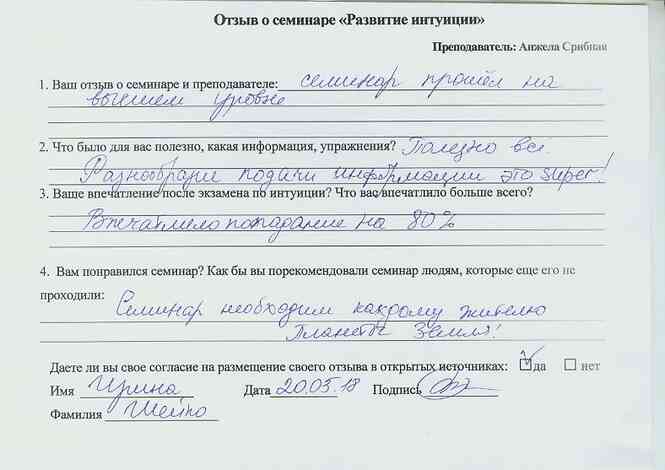 Отзыв о семинаре «Развитие интуиции»
Преподаватель: Анжела Срибная
1. Ваш отзыв о семинаре и преподавателе: семинар прошёл на
высшем уровне
2. Что было для вас полезно, какая информация, упражнения? Полезно всё.
Разнообразие подачи информации это super!
3. Ваше впечатление после экзамена по интуиции? Что вас впечатлило больше всего?
Впечатлило попадание на 80%
4. Вам понравился семинар? Как бы вы порекомендовали семинар людям, которые еще его не
проходили: Семинар необходим каждому жителю
Планеты Земля!
Даете ли вы свое согласие на размещение своего отзыва в открытых источниках: да нет
Имя Ирина Дата 20.05.18 Подпись
Фамилия